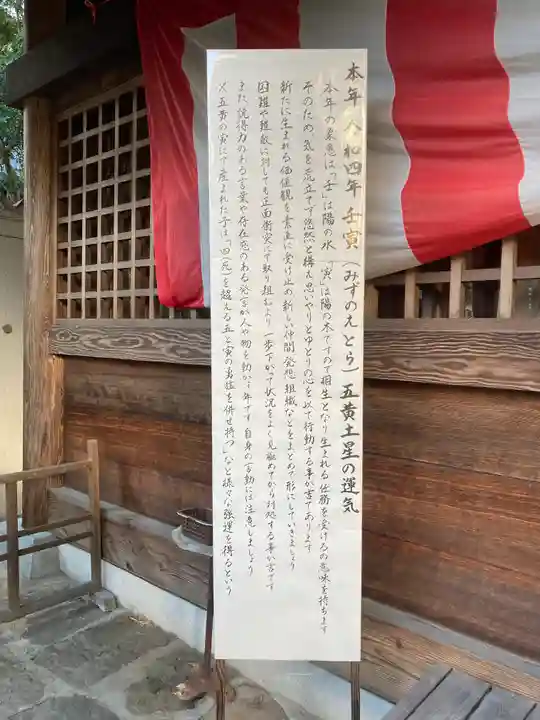 本年 令和四年 壬寅(みずのえとら)五黄土星の運気
本年の象意は、「壬」は陽の水 「寅」は陽の木ですので相生となり生まれる 任務を受けるの意味を持ちます
そのため、気を荒立てず悠然と構え思いやりとゆとりの心を以て行動する事が吉であります
新たに生まれる価値観を素直に受け止め新しい仲間 発想 組織などをまとめて形にしていきましょう
困難や難敵に対しても正面衝突にて取り組むより 一歩下がって状況をよく見極めてから対処する事が吉です
また、説得力のある言葉や存在感のある発言が人や物を動かす年です 自身の言動には注意しましょう
又、五黄の寅にて産まれた子は「四(死)を超える五と寅の勇猛を併せ持つ」など様々な強運を得るという